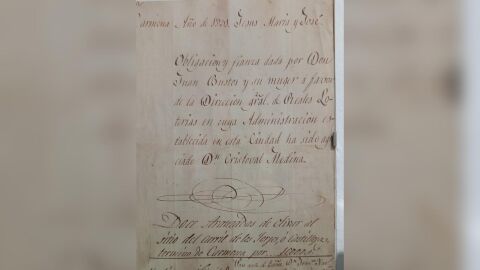 Carmona Año de 1800. Jesus Maria y José
Obligacion y fianza dada por Don
Juan Bustos y su muger a favor
de la Direccion gral. de Reales Lo-
terias en cuya Administracion es-
tablecida en esta Ciudad ha sido a-
graciado Dn Cristoval Medina.
Doce Aranzadas de Olivar al
sitio del Carril de los Joyos, o Castilleja
termino de Carmona por